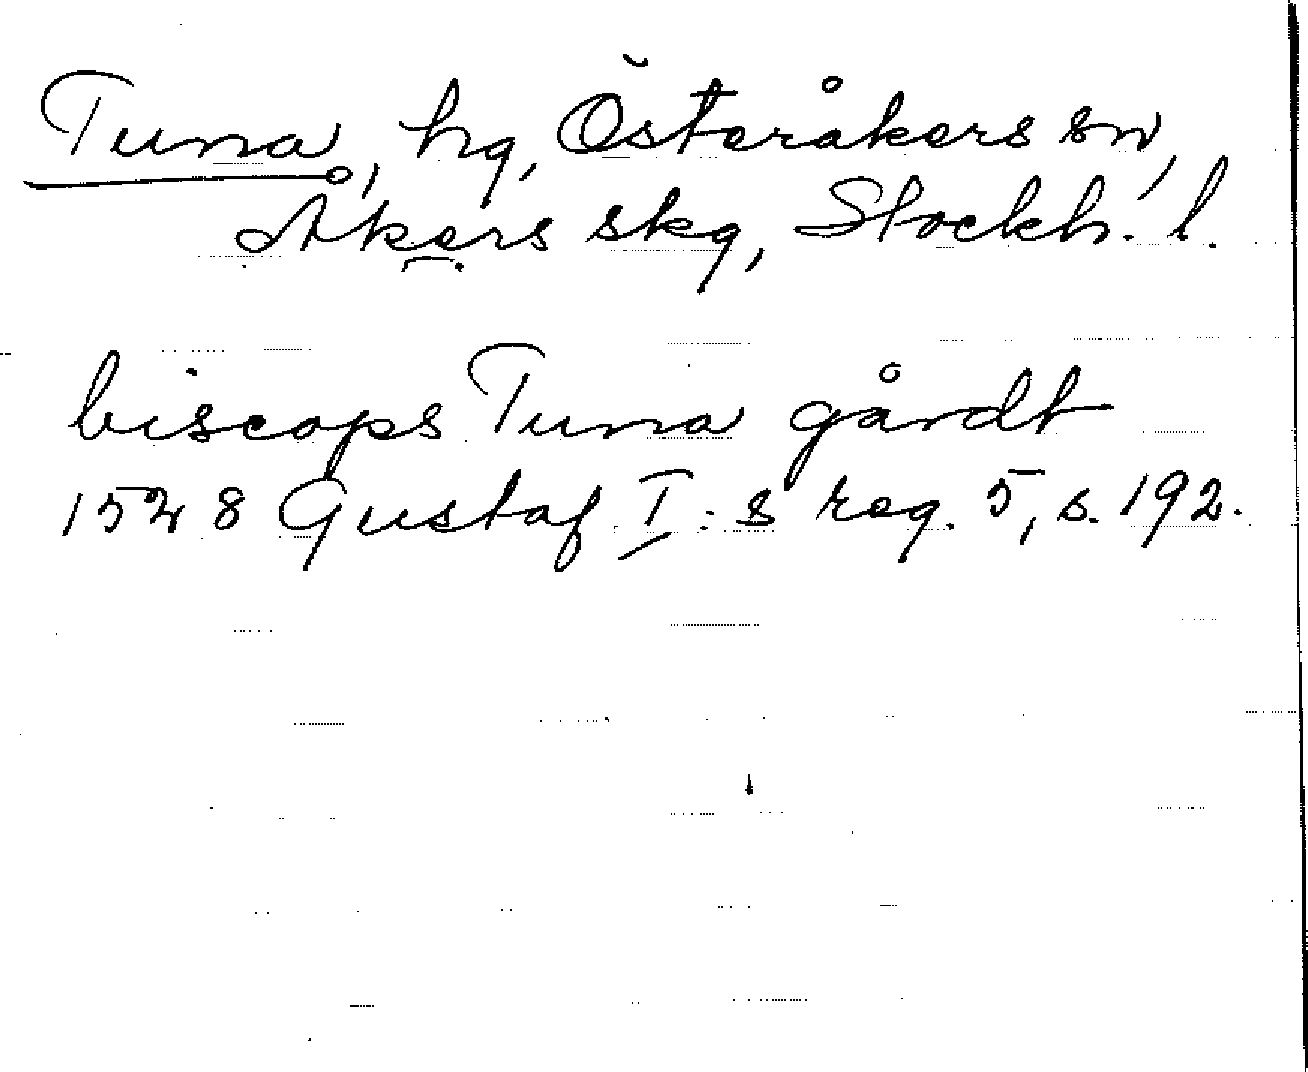 Tuna, hg, Österåkers sn,
Åkers skg, Stockh. l.
biscops Tuna gårdt
1528 Gustaf I:s reg. 5, s. 192.